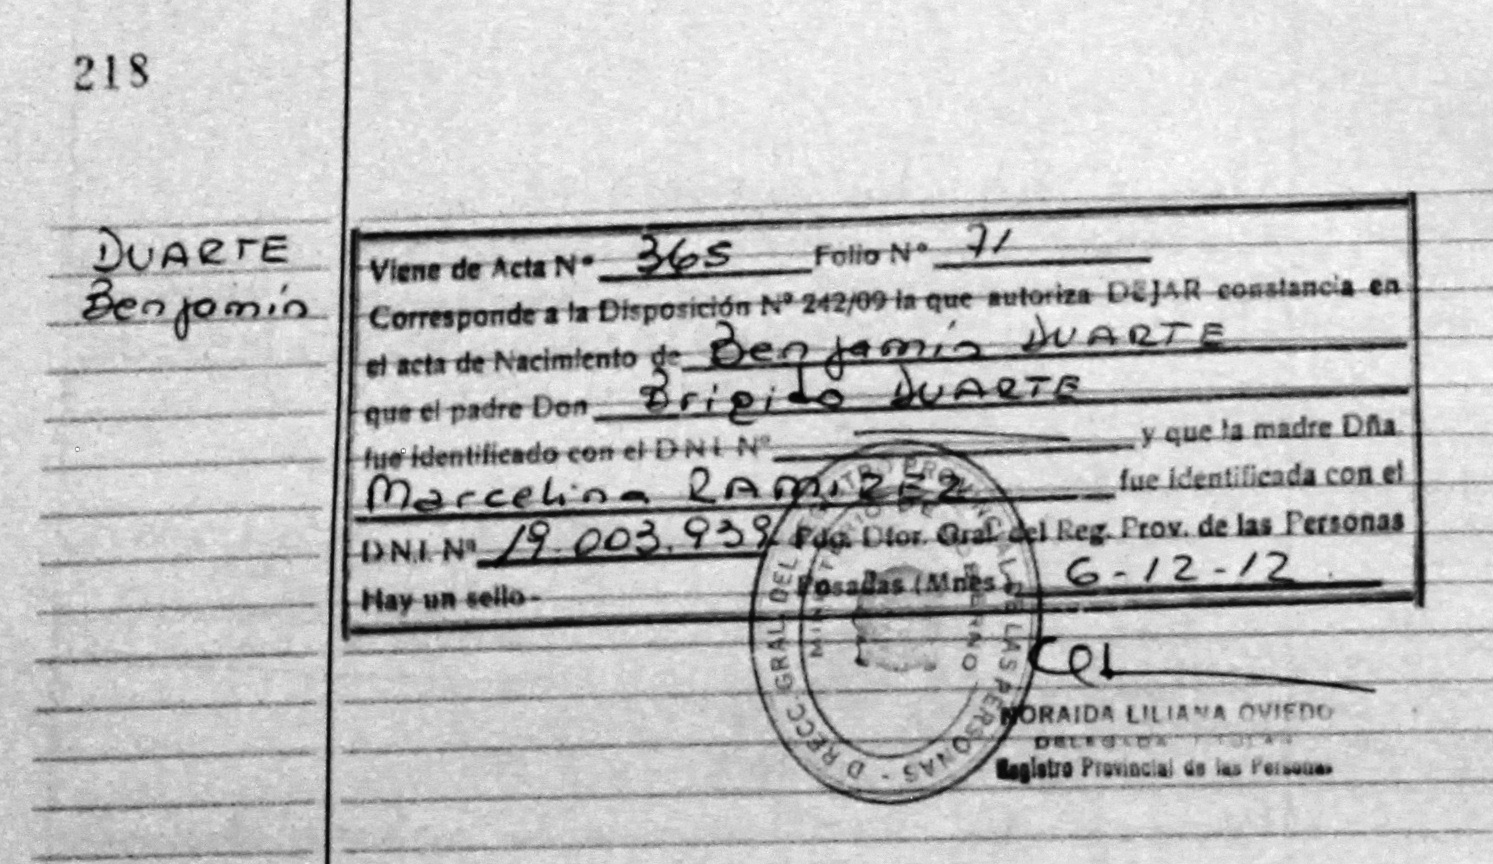 218
DUARTE
Benjamín
Viene de Acta Nº 365 Folio Nº 71
Corresponde a la Disposición Nº 242/09 la que autoriza DEJAR constancia en
el acta de Nacimiento de Benjamín DUARTE
que el padre Don Brigido DUARTE
fue identificado con el D.N.I. Nº y que la madre Dña
Marcelina RAMIREZ fue identificada con el
D.N.I. Nº 19.003.939 Fdo. Dtor. Gral del Reg. Prov. de las Personas
Hay un sello- Posadas (Mnes) 6-12-12
DIRECC. GRAL. DEL REGISTRO PROVINCIAL DE LAS PERSONAS -
MINISTERIO DE GOBIERNO
NORAIDA LILIANA OVIEDO
DELEGADA TITULAR
Registro Provincial de las Personas